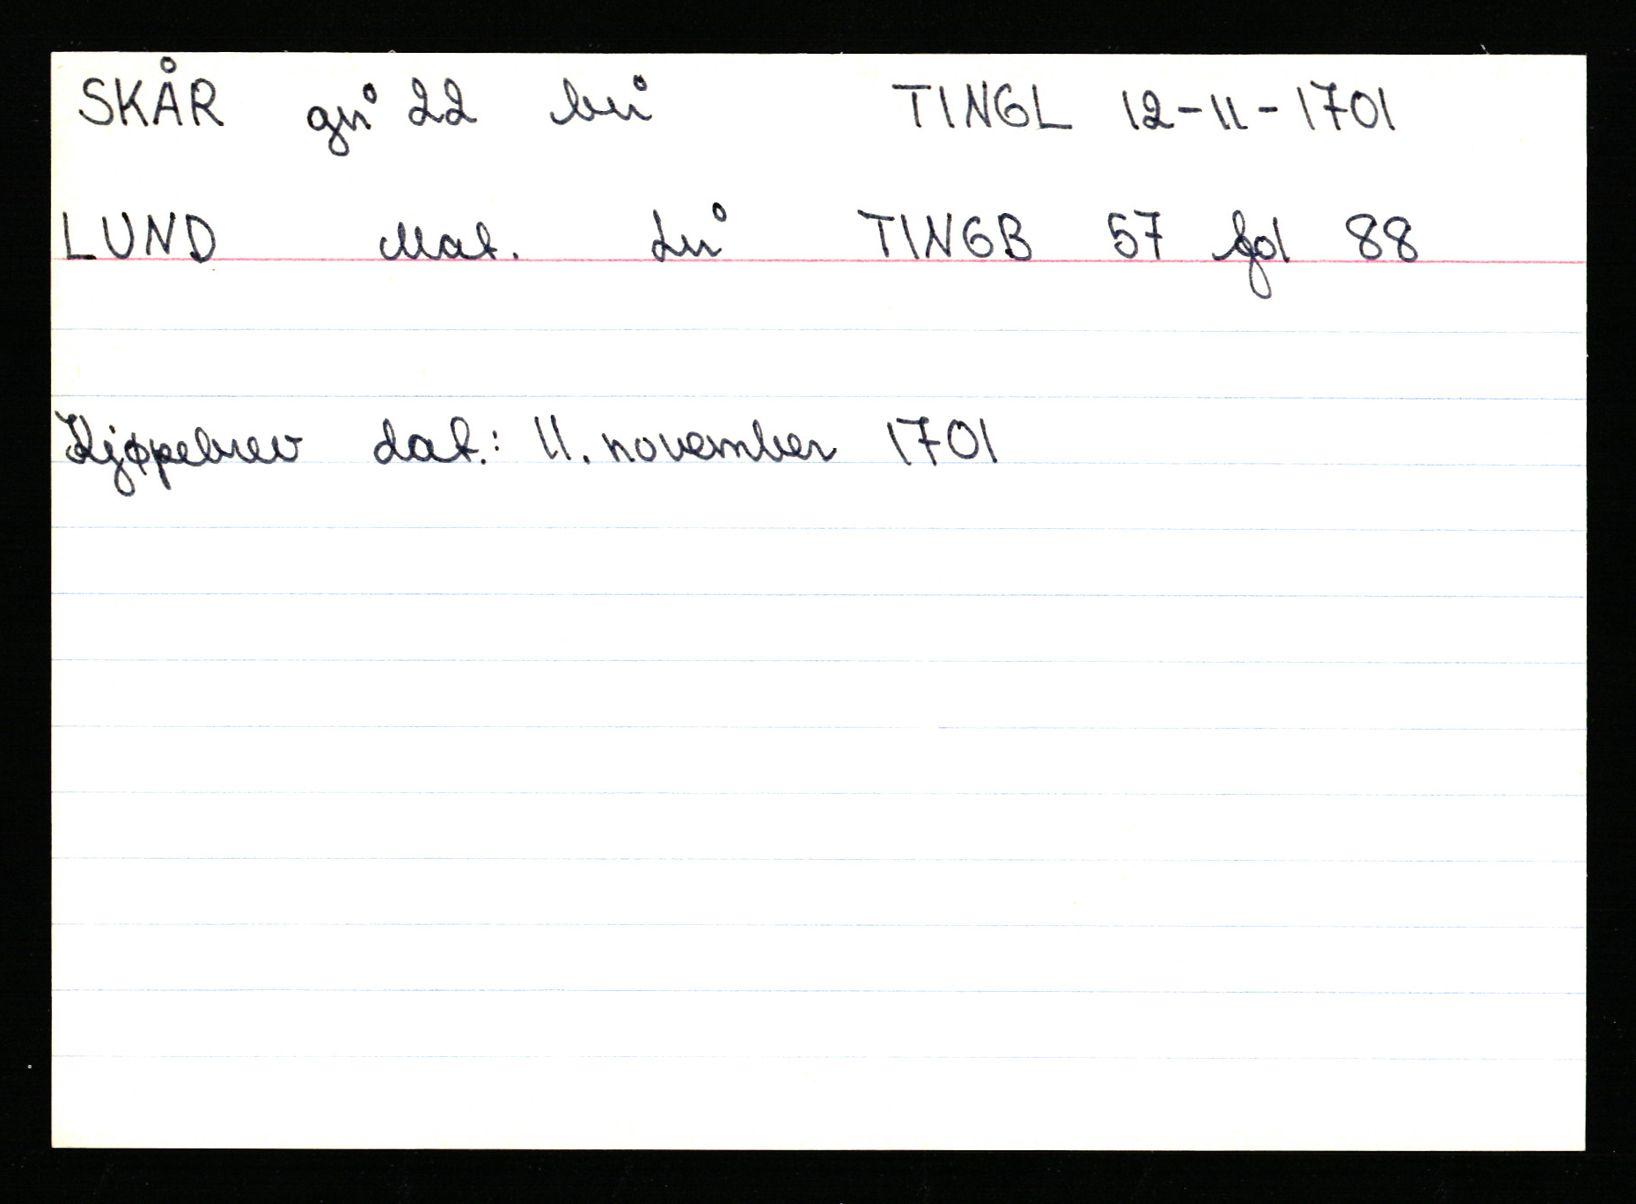 SKÅR gn° 22 bn° TINGL 12-11-1701
LUND Mat. Ln° TINGB 57 fol 88
Kjøpebrev dat.: 11. november 1701